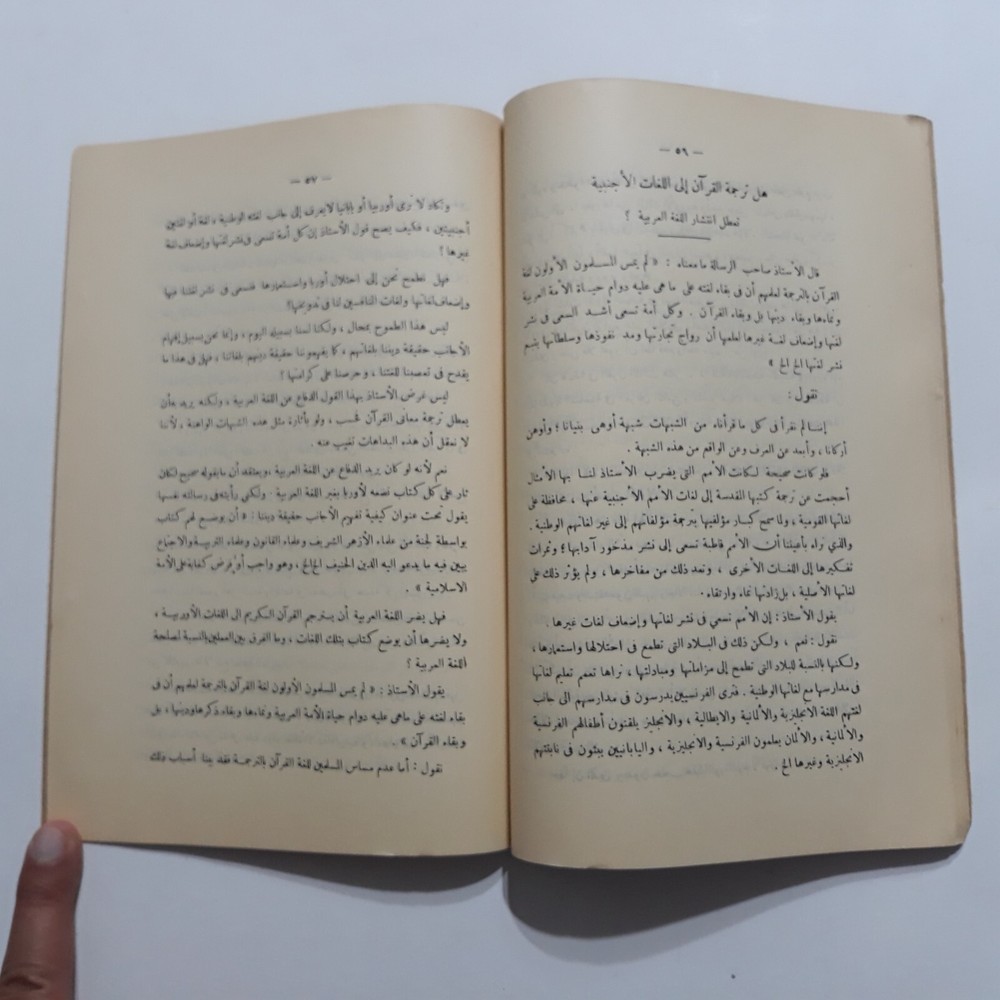 — ٥٦ —
هل ترجمة القرآن إلى اللغات الأجنبية
تعطل انتشار اللغة العربية ؟
قال الأستاذ صاحب الرسالة ما معناه : « لم يمس المسلمون الأولون لغة
القرآن بالترجمة لعلمهم أن فى بقاء لغته على ما هى عليه دوام حياة الأمة العربية
ونماءها وبقاء دينها بل وبقاء القرآن . وكل أمة تسعى أشد السعى فى نشر
لغتها وإضعاف لغة غيرها لعلمها أن رواج تجارتها ومد نفوذها وسلطانها يتبع
نشر لغتها الخ الخ »
نقول :
إننا لم نقرأ فى كل ما قرأناه من الشبهات شبهة أوهى بنيانا ؛ وأوهن
أركانا ، وأبعد عن العرف وعن الواقع من هذه الشبهة .
فلو كانت صحيحة لكانت الأمم التى يضرب الأستاذ لنا بها الأمثال
أحجمت عن ترجمة كتبها المقدسة إلى لغات الأمم الأجنبية عنها ، محافظة على
لغاتها القومية ، ولما سمح كبار مؤلفيها بترجمة مؤلفاتهم إلى غير لغاتهم الوطنية .
والذى نراه بأعيننا أن الأمم قاطبة تسعى إلى نشر مذخور آدابها ؛ وثمرات
تفكيرها إلى اللغات الأخرى ، وتعد ذلك من مفاخرها ، ولم يؤثر ذلك على
لغاتها الأصلية ، بل زادتها نماء وارتقاء .
يقول الأستاذ : إن الأمم تسعى فى نشر لغاتها وإضعاف لغات غيرها .
نقول : نعم ، ولكن ذلك فى البلاد التى تطمع فى احتلالها واستعمارها ،
ولكنها بالنسبة للبلاد التى تطمح إلى مزاماتها ومبادلتها ، تراها تعمم تعليم لغاتها
فى مدارسها مع لغاتها الوطنية . فترى الفرنسيين يدرسون فى مدارسهم الى جانب
لغتهم اللغة الانجليزية والألمانية والايطالية ، والانجليز يلقنون أطفالهم الفرنسية
والألمانية ، والألمان يعلمون الفرنسية والانجليزية ، واليابانيين يبثون فى نابتتهم
الانجليزية وغيرها الخ .
— ٥٧ —
ونكاد لا نرى أوربيا أو يابانيا لا يعرف إلى جانب لغته الوطنية ، لغة أو لغتين
أجنبيتين ، فكيف يصح قول الأستاذ إن كل أمة تسعى فى نشر لغتها وإضعاف لغة
غيرها ؟
فهل نطمح نحن إلى احتلال أوربا واستعمارها فنسعى فى نشر لغتنا فيها
وإضعاف لغاتها ولغات المنافسين لنا فى
ليس هذا الطموح بمحال ، ولكنا لسنا بسبيله اليوم ، وإنما نحن بسبيل إفهام
الأجانب حقيقة ديننا بلغاتهم ، كما يفهموننا حقيقة دينهم بلغاتنا ، فهل فى هذا ما
يقدح فى تعصبنا للغتنا ، وحرصنا على كرامتها ؟
ليس غرض الأستاذ بهذا القول الدفاع عن اللغة العربية ، ولكنه يريد به أن
يعطل ترجمة معانى القرآن فحسب ، ولو بأثارة مثل هذه الشبهات الواهنة ، لأننا
لا نعقل أن هذه البداهات تغيب عنه .
نعم لأنه لو كان يريد الدفاع عن اللغة العربية ، ويعتقد أن ما يقوله صحيح لكان
ثار على كل كتاب نضعه لأوربا بغير اللغة العربية . ولكنى رأيته فى رسالته نفسها
يقول تحت عنوان كيفية تفهيم الأجانب حقيقة ديننا : « أن يوضع لهم كتاب
بواسطة لجنة من علماء الأزهر الشريف وعلماء القانون وعلماء التربية والاجتماع
يبين فيه ما يدعو اليه الدين الحنيف الخ الخ ، وهو واجب أو فرض كفاية على الأمة
الاسلامية » .
فهل يضير اللغة العربية أن يترجم القرآن الكريم الى اللغات الأوربية ،
ولا يضرها أن يوضع كتاب بتلك اللغات ، وما الفرق بين العملين بالنسبة لصلحة
اللغة العربية ؟
يقول الأستاذ : « لم يمس المسلمون الأولون لغة القرآن بالترجمة لعلمهم أن فى
بقاء لغته على ماهى عليه دوام حياة الأمة العربية ونماءها وبقاء ذكرها ودينها ، بل
وبقاء القرآن »
نقول : أما عدم مساس المسلمين للغة القرآن بالترجمة فقد بينا أسباب ذلك